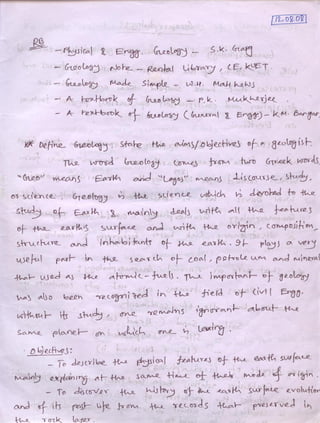 12.08.08
RB
- Physical & Engg. Geology - S.K. Garg
- Geology Note - Rental Library, CE, KUET
- Geology Made Simple - W.H. Matthews
- A textbook of Geology - P.K. Mukherjee.
- A textbook of Geology (General & Engg) - K.M. Bangar.
Define Geology; State the aims/objectives of a geologist.
The word Geology comes from two Greek words,
"Geo" means Earth and "Logos" means discourse, study,
or science. Geology is the science which is devoted to the
study of Earth & mainly deals with all the features
of the earth's surface and with the origin, composition,
structure and inhabitants of the earth. It plays a very
useful part in the search of coal, petroleum and mineral
that used as the atomic-fuels. The important of geology
has also been recognized in the field of Civil Engg.
without its study, one remains ignorant about the
same planet on which one is
Objectives:
- To describe the physical features of the earth surface
mainly explaining at the same time of their mode of origin.
- To discover the history of the earth surface evolution
and of its past life from the records that preserved in
the rock layer.